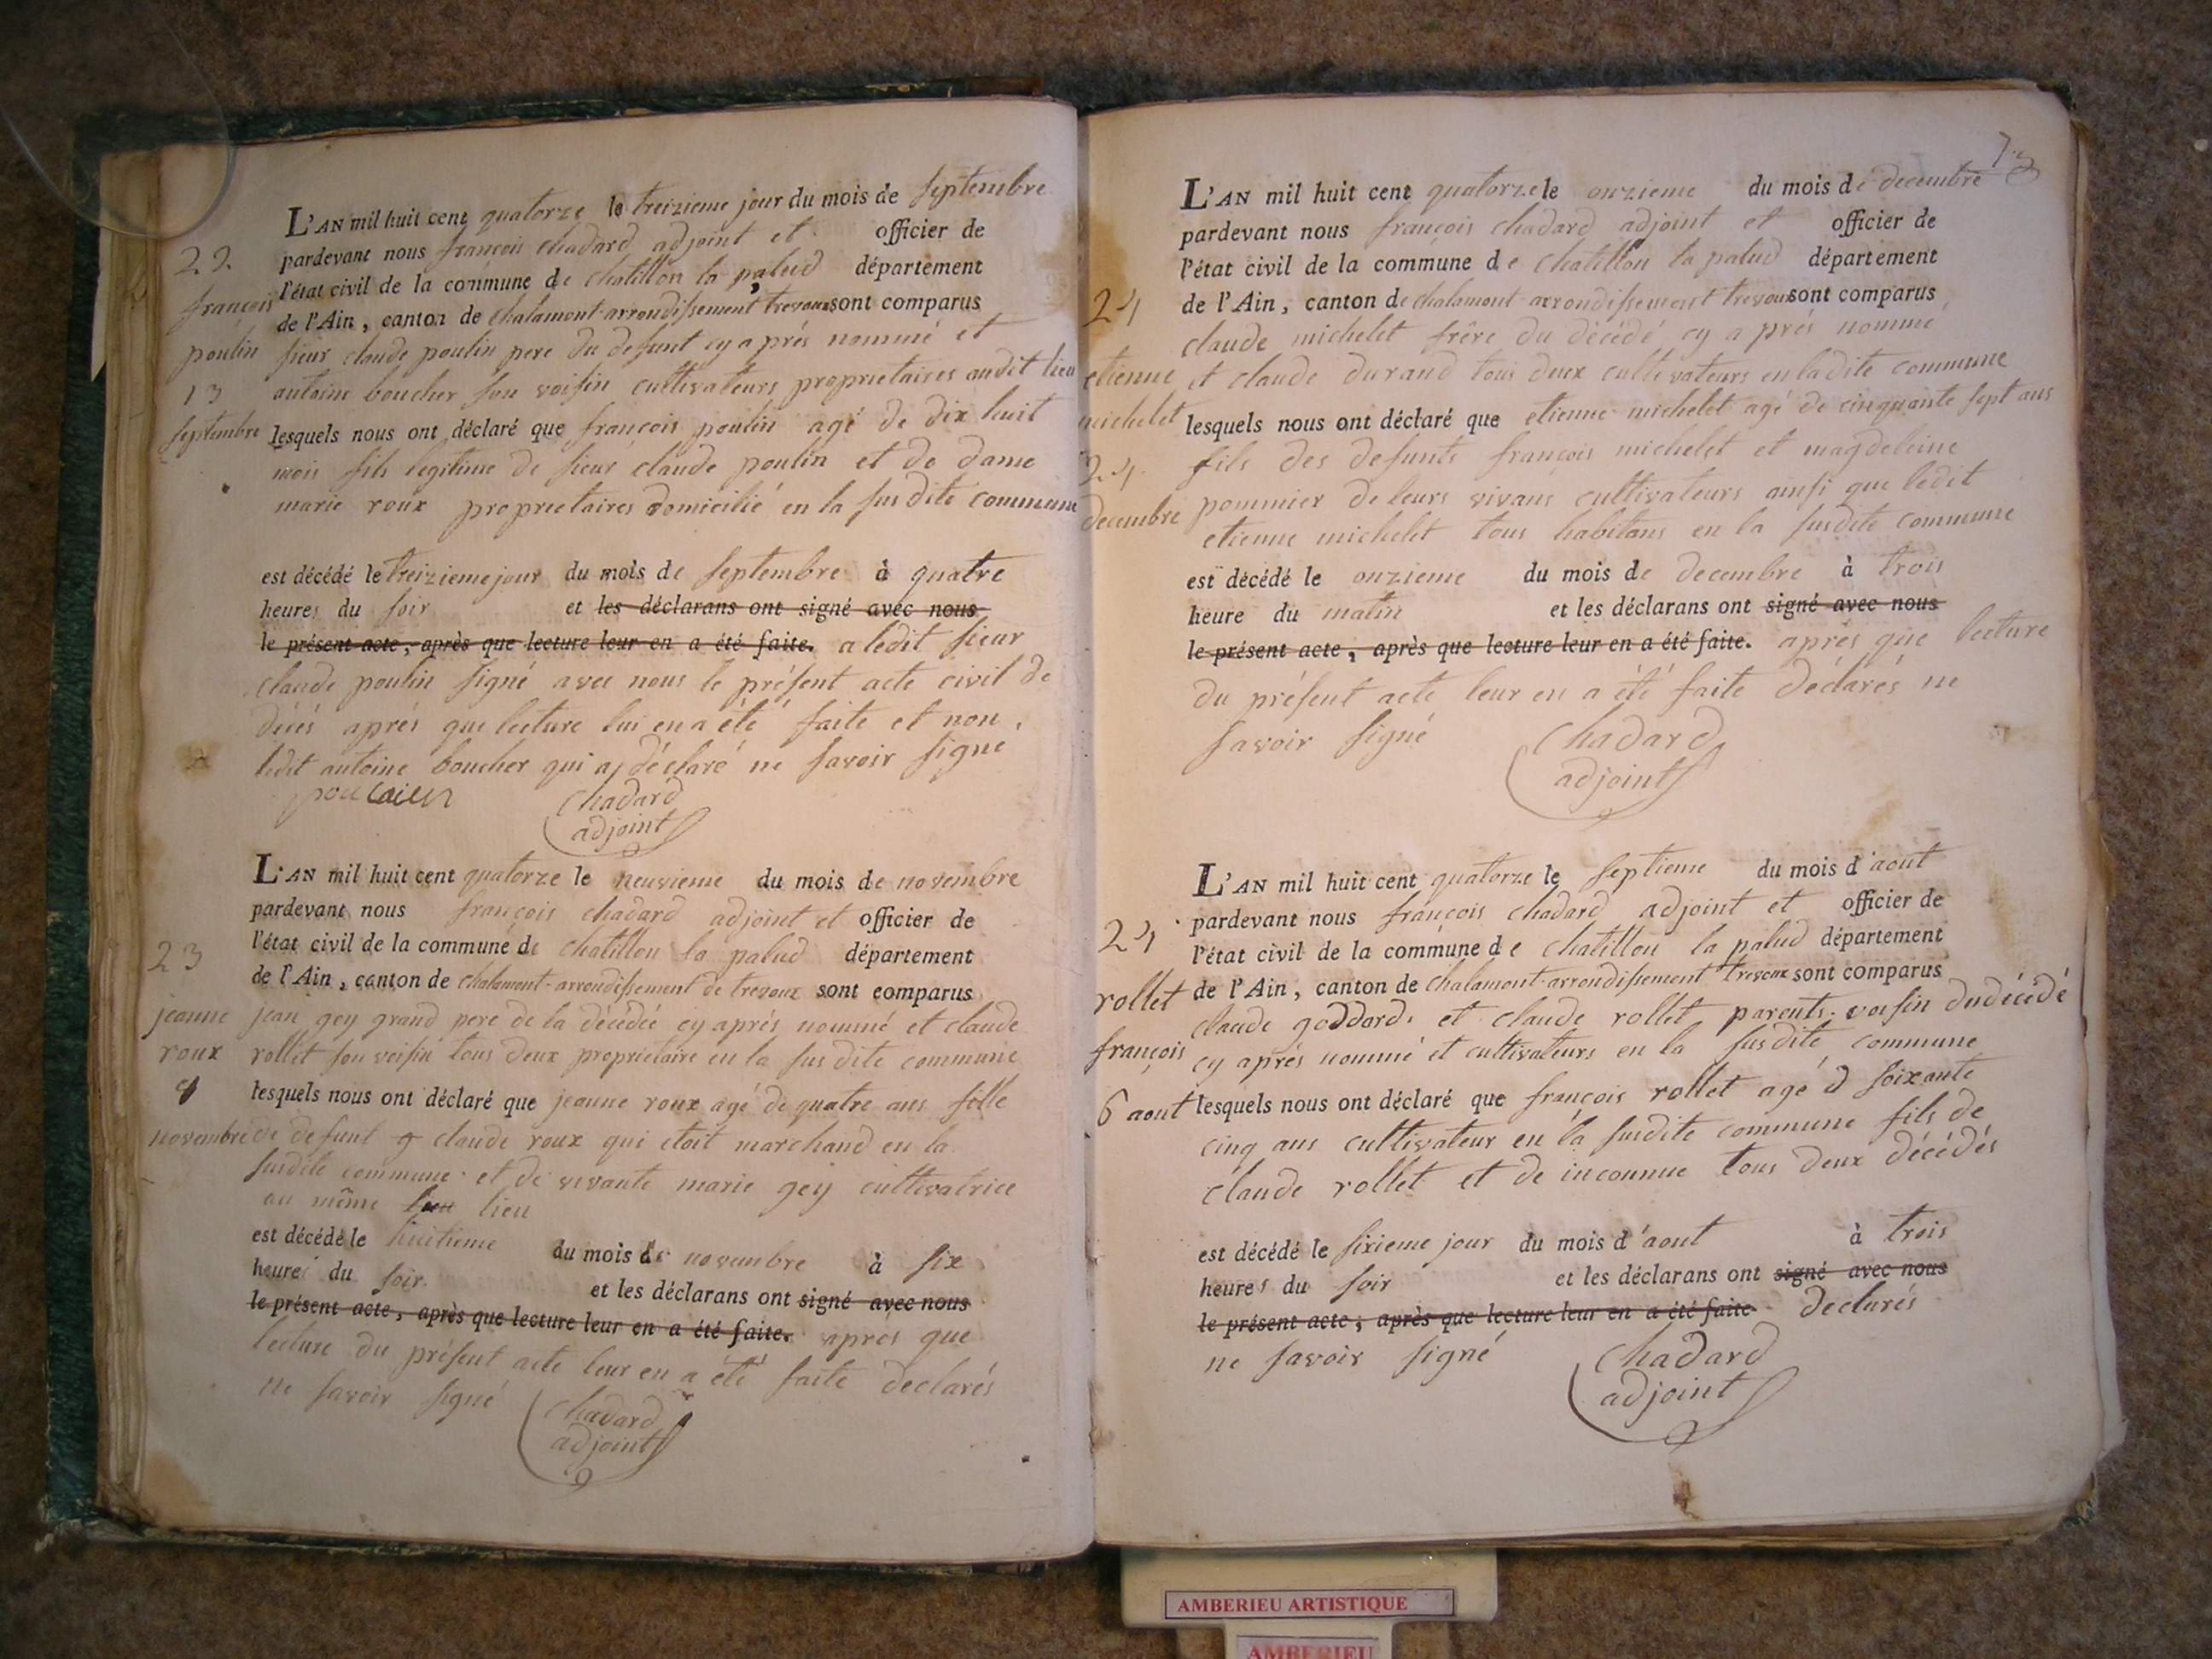 L'AN mil huit cent quatorze le treizieme jour du mois de septembre
pardevant nous françois chadard adjoint et officier de
l'état civil de la commune de chatillon la palud département
de l'Ain, canton de chalamont arrondissement trevoux sont comparus
sieur claude poulin pere du defunt cy aprés nommé et
antoine boucher son voisin cultivateurs proprietaires audit lieu
lesquels nous ont déclaré que françois poulin agé de dix huit
mois fils legitime de sieur claude poulin et de dame
marie roux proprietaires domicilié en la susdite commune
est décédé le treizieme jour du mois de septembre à quatre
heures du soir et les déclarans ont signé avec nous
le présent acte, après que lecture leur en a été faite. a ledit sieur
claude poulin signé avec nous le présent acte civil de
décés aprés que lecture lui en a été faite et non
ledit antoine boucher qui a déclaré ne savoir signé
chadard
adjoint
22
françois
poulin
13
septembre
L'AN mil huit cent quatorze le neuvieme du mois de novembre
pardevant nous françois chadard adjoint et officier de
l'état civil de la commune de chatillon la palud département
de l'Ain, canton de chalamont arrondissement de trevoux sont comparus
jean gey grand pere de la décédée cy aprés nommé et claude
rollet son voisin tous deux proprietaire en la susdite commune
lesquels nous ont déclaré que jeanne roux agé de quatre ans fille
de defunt claude roux qui etoit marchand en la
susdite commune et de vivante marie gey cultivatrice
au même lieu lieu
est décédé le huitieme du mois de novembre à six
heures du soir et les déclarans ont signé avec nous
le présent acte, après que lecture leur en a été faite. aprés que
lecture du présent acte leur en a été faite declarés
ne savoir signé
chadard
adjoint
23
jeanne
roux
8
novembre
L'AN mil huit cent quatorze le onzieme du mois de decembre
pardevant nous françois chadard adjoint et officier de
l'état civil de la commune de chatillon la palud département
de l'Ain, canton de chalamont arrondissement trevoux sont comparus
claude michelet frêre du décédé cy aprés nommé
et claude durand tous deux cultivateurs en ladite commune
lesquels nous ont déclaré que etienne michelet agé de cinquante sept ans
fils des defunts françois michelet et magdeleine
pommier de leurs vivans cultivateurs ainsi que ledit
etienne michelet tous habitans en la susdite commune
est décédé le onzieme du mois de decembre à trois
heure du matin et les déclarans ont signé avec nous
le présent acte, après que lecture leur en a été faite. aprés que lecture
du présent acte leur en a été faite déclarés ne
savoir signé
chadard
adjoint
24
etienne
michelet
decembre
L'AN mil huit cent quatorze le septieme du mois d'aout
pardevant nous françois chadard adjoint et officier de
l'état civil de la commune de chatillon la palud département
de l'Ain, canton de chalamont arrondissement trevoux sont comparus
claude goddard et claude rollet parents voisin du décédé
cy aprés nommé et cultivateurs en la susdite commune
lesquels nous ont déclaré que françois rollet agé d soixante
cinq ans cultivateur en la susdite commune fils de
claude rollet et de inconnue tous deux décédés
est décédé le sixieme jour du mois d'aout à trois
heures du soir et les déclarans ont signé avec nous
le présent acte, après que lecture leur en a été faite. declarés
ne savoir signé
chadard
adjoint
24
rollet
françois
6 aout
AMBERIEU ARTISTIQUE
AMBERIEU